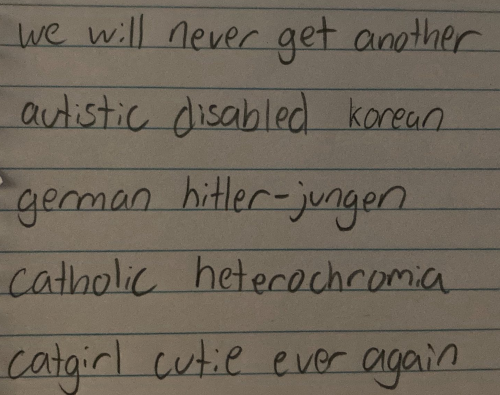 we will never get another
autistic disabled korean
german hitler-jungen
catholic heterochromia
catgirl cutie ever again